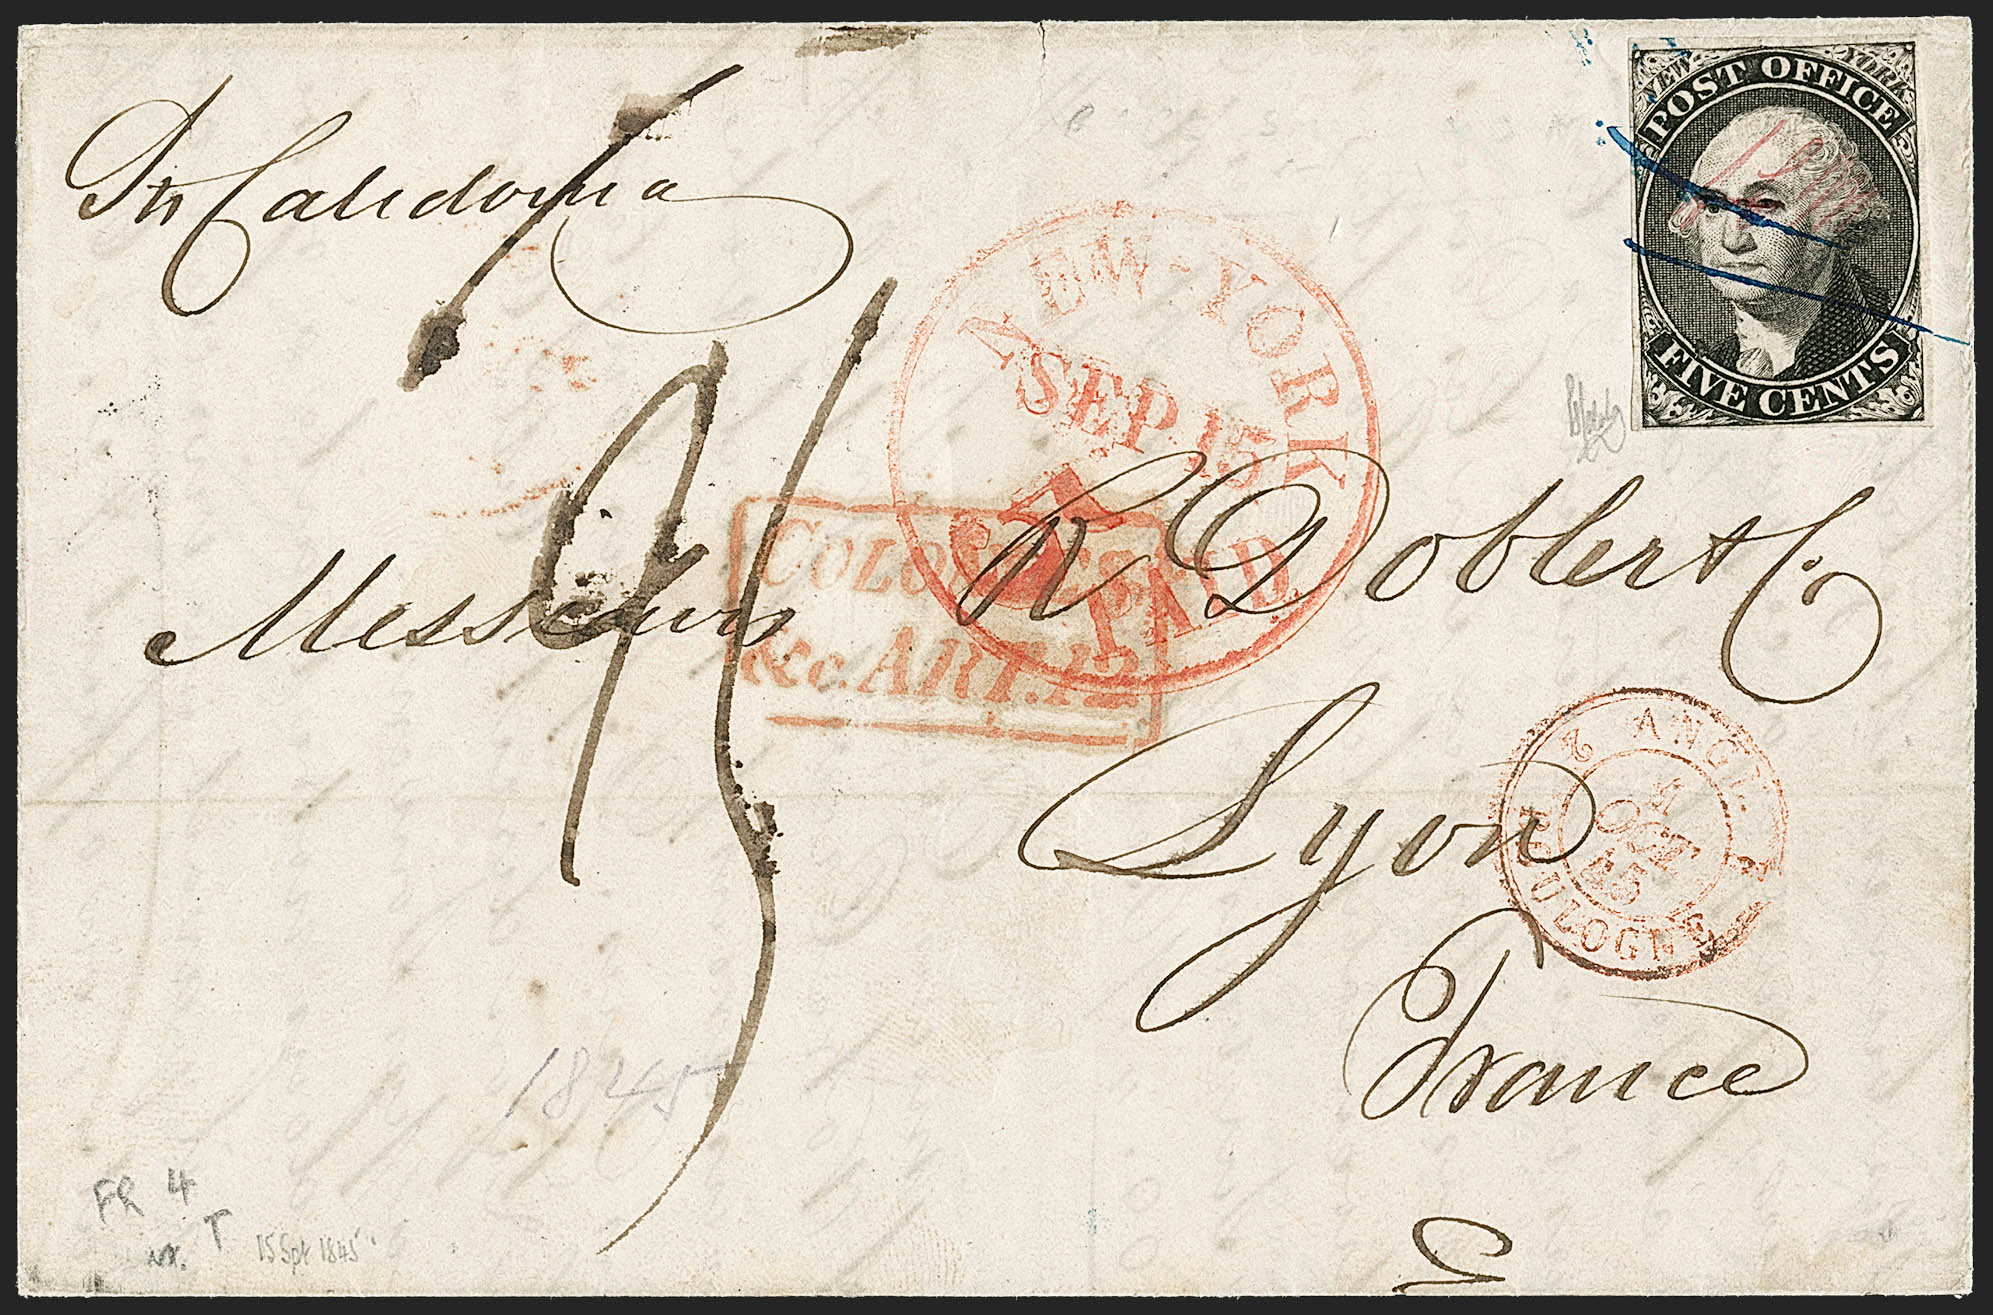 Pr Caledonia
NEW YORK
POST OFFICE
FIVE CENTS
NEW-YORK
SEP. 15
PAID
COLONIES
&c. ART. 12
Messieurs R Dobler & C.
Lyon
France
2 ANGL. 2
4
OCT.
45
BOULOGNE
1845
FR 4
T
15 Sept 1845